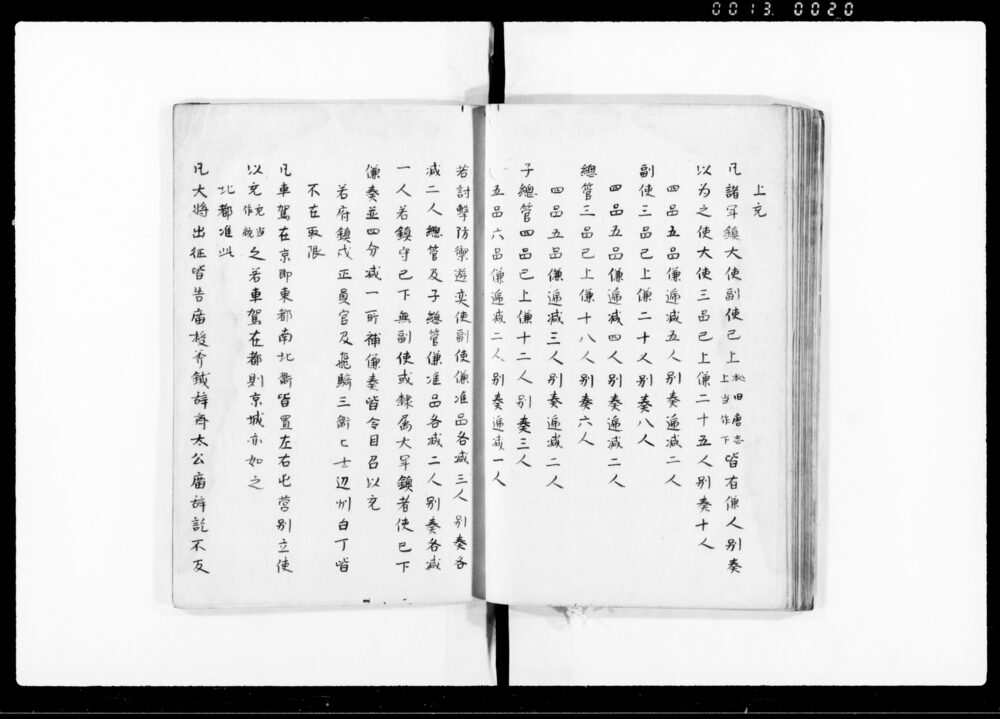 0013.0020
上充
凡諸軍鎮大使副使已上拠旧唐志上当作下皆有傔人别奏
以为之使大使三品已上傔二十五人别奏十人
四品五品傔逓减五人别奏逓减二人
副使三品已上傔二十人别奏八人
四品五品傔逓减四人别奏逓减二人
總管三品已上傔十八人别奏六人
四品五品傔逓减三人别奏逓减二人
子總管四品已上傔十二人别奏三人
五品六品傔逓减二人别奏逓减一人
若討撃防禦遊奕使副使傔准品各减三人别奏各
减二人總管及子總管傔准品各减二人别奏各减
一人若鎮守已下無副使或隸属大軍鎮者使已下
傔奏並四分减一所補傔奏皆令自召以充
若府鎮戍正員官及飛騎三衛衛士边州白丁皆
不在取限
凡車駕在京即東都南北衙皆置左右屯营别立使
以充充当作統之若車駕在都則京城亦如之
北都准此
凡大将出征皆告廟授斧鉞辞齊太公廟辞訖不反